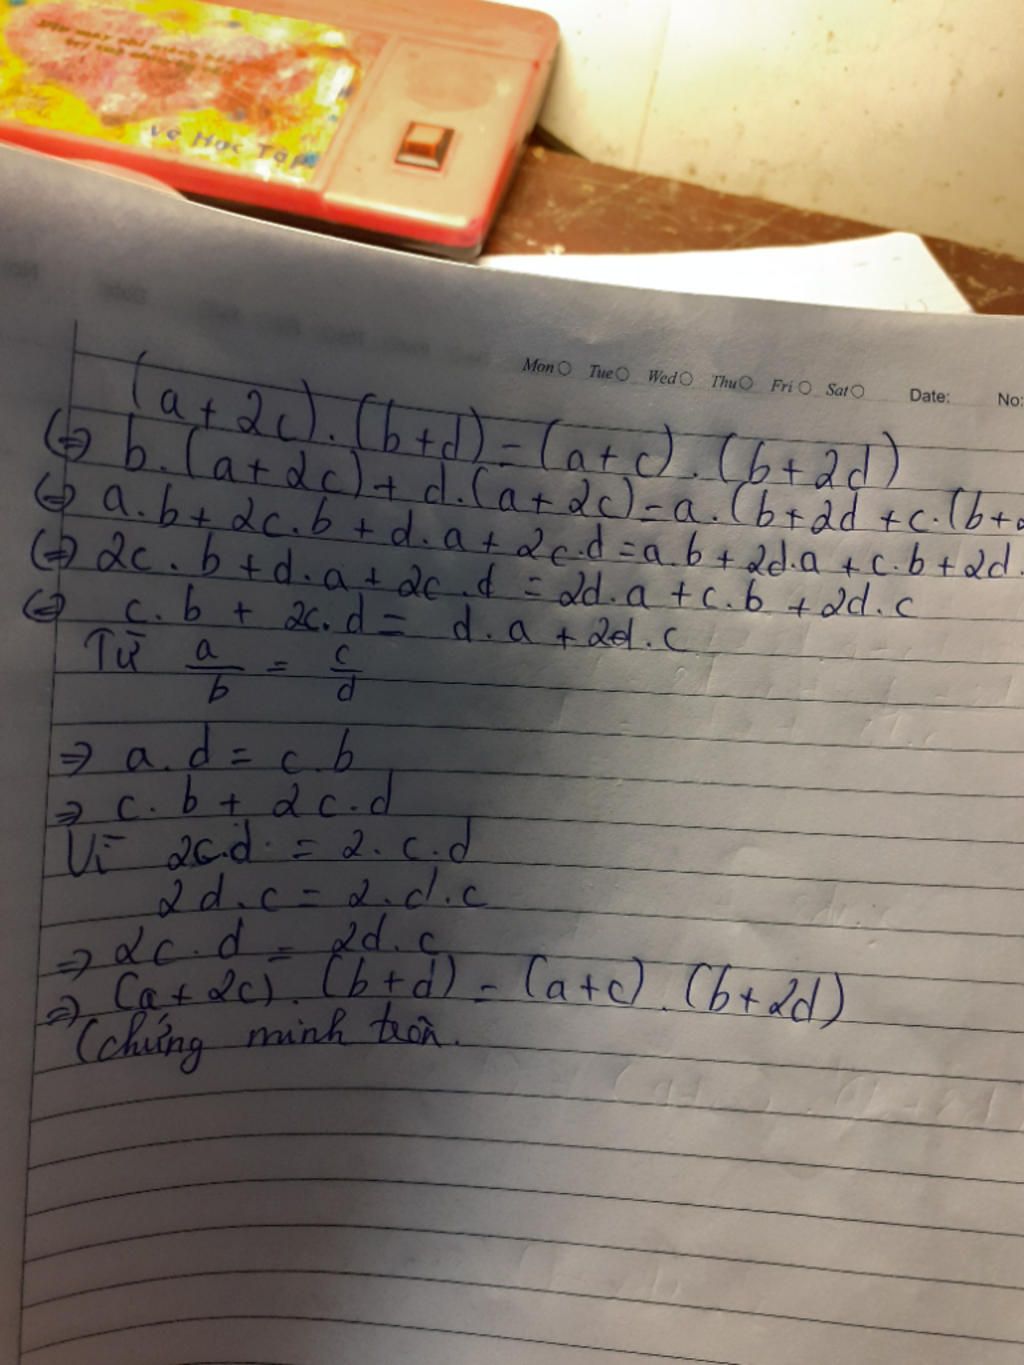 Vê Học Tập
Mon Tue Wed Thu Fri Sat Date: No:
(a + 2c) . (b + d) = (a + c) . (b + 2d)
(=) b . (a + 2c) + d . (a + 2c) = a . (b + 2d + c . (b + 2
(=) a . b + 2c . b + d . a + 2c . d = a . b + 2d . a + c . b + 2d .
(=) 2c . b + d . a + 2c . d = 2d . a + c . b + 2d . c
(=) c . b + 2c . d = d . a + 2d . c
Từ a/b = c/d
=> a . d = c . b
=> c . b + 2c . d
Vì 2c . d = 2 . c . d
2d . c = 2 . d . c
=> 2c . d = 2d . c
=> (a + 2c) . (b + d) = (a + c) . (b + 2d)
(chứng minh trên.